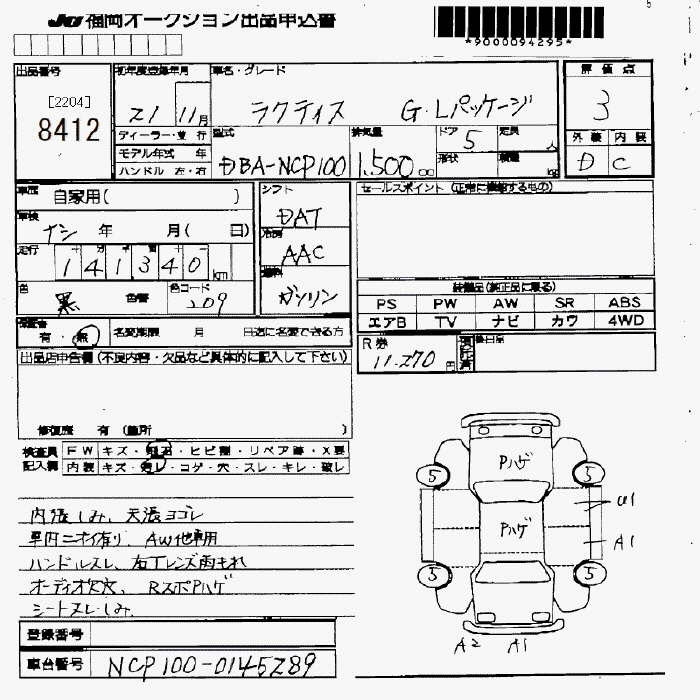 JU 福岡オークション出品申込書
*9000094295*
出品番号 初年度登録年月 車名・グレード 評価点
[2204]
8412
21 11月 ラクティス G・Lパッケージ 3
ディーラー・並行 型式 排気量 ドア 定員 外装 内装
モデル年式 年 DBA-NCP100 1,500cc 5 人 D C
ハンドル 左・右 形状 積載 kg
車歴 自家用( ) シフト セールスポイント (正常に機能するもの)
車検 ナシ 年 月( 日) DAT
走行 141340km 冷房 AAC
色 黒 色替 色コード 209 燃料 ガソリン
装備品(純正品に限る)
PS PW AW SR ABS
エアB TV ナビ カワ 4WD
保証書 有・無 名変期限 月 日迄に名変できる方
R券 11,270円 後日品
出品店申告欄(不良内容・欠品など具体的に記入して下さい)
修復歴 有 (箇所 )
検査員 FW キズ・飛石・ヒビ割・リペア跡・X要
記入欄 内装 キズ・汚レ・コゲ・穴・スレ・キレ・破レ
Pハゲ
5 5
U1
Pハゲ
A1
5 5
A2 A1
内張しみ、天張ヨゴレ
車内ニオイ有り、AW他車用
ハンドルスレ、右テレンズ雨もれ
オーディオ欠穴、RスポPハゲ
シートスレ・しみ、
登録番号
車台番号 NCP100-0145289